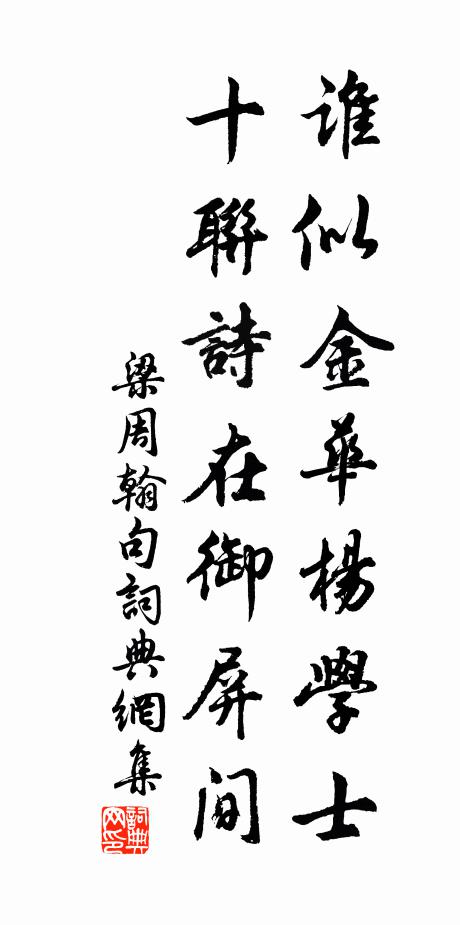 誰似金華楊學士
十聯詩在御屏間
梁周翰句詞典網集
詞典網印